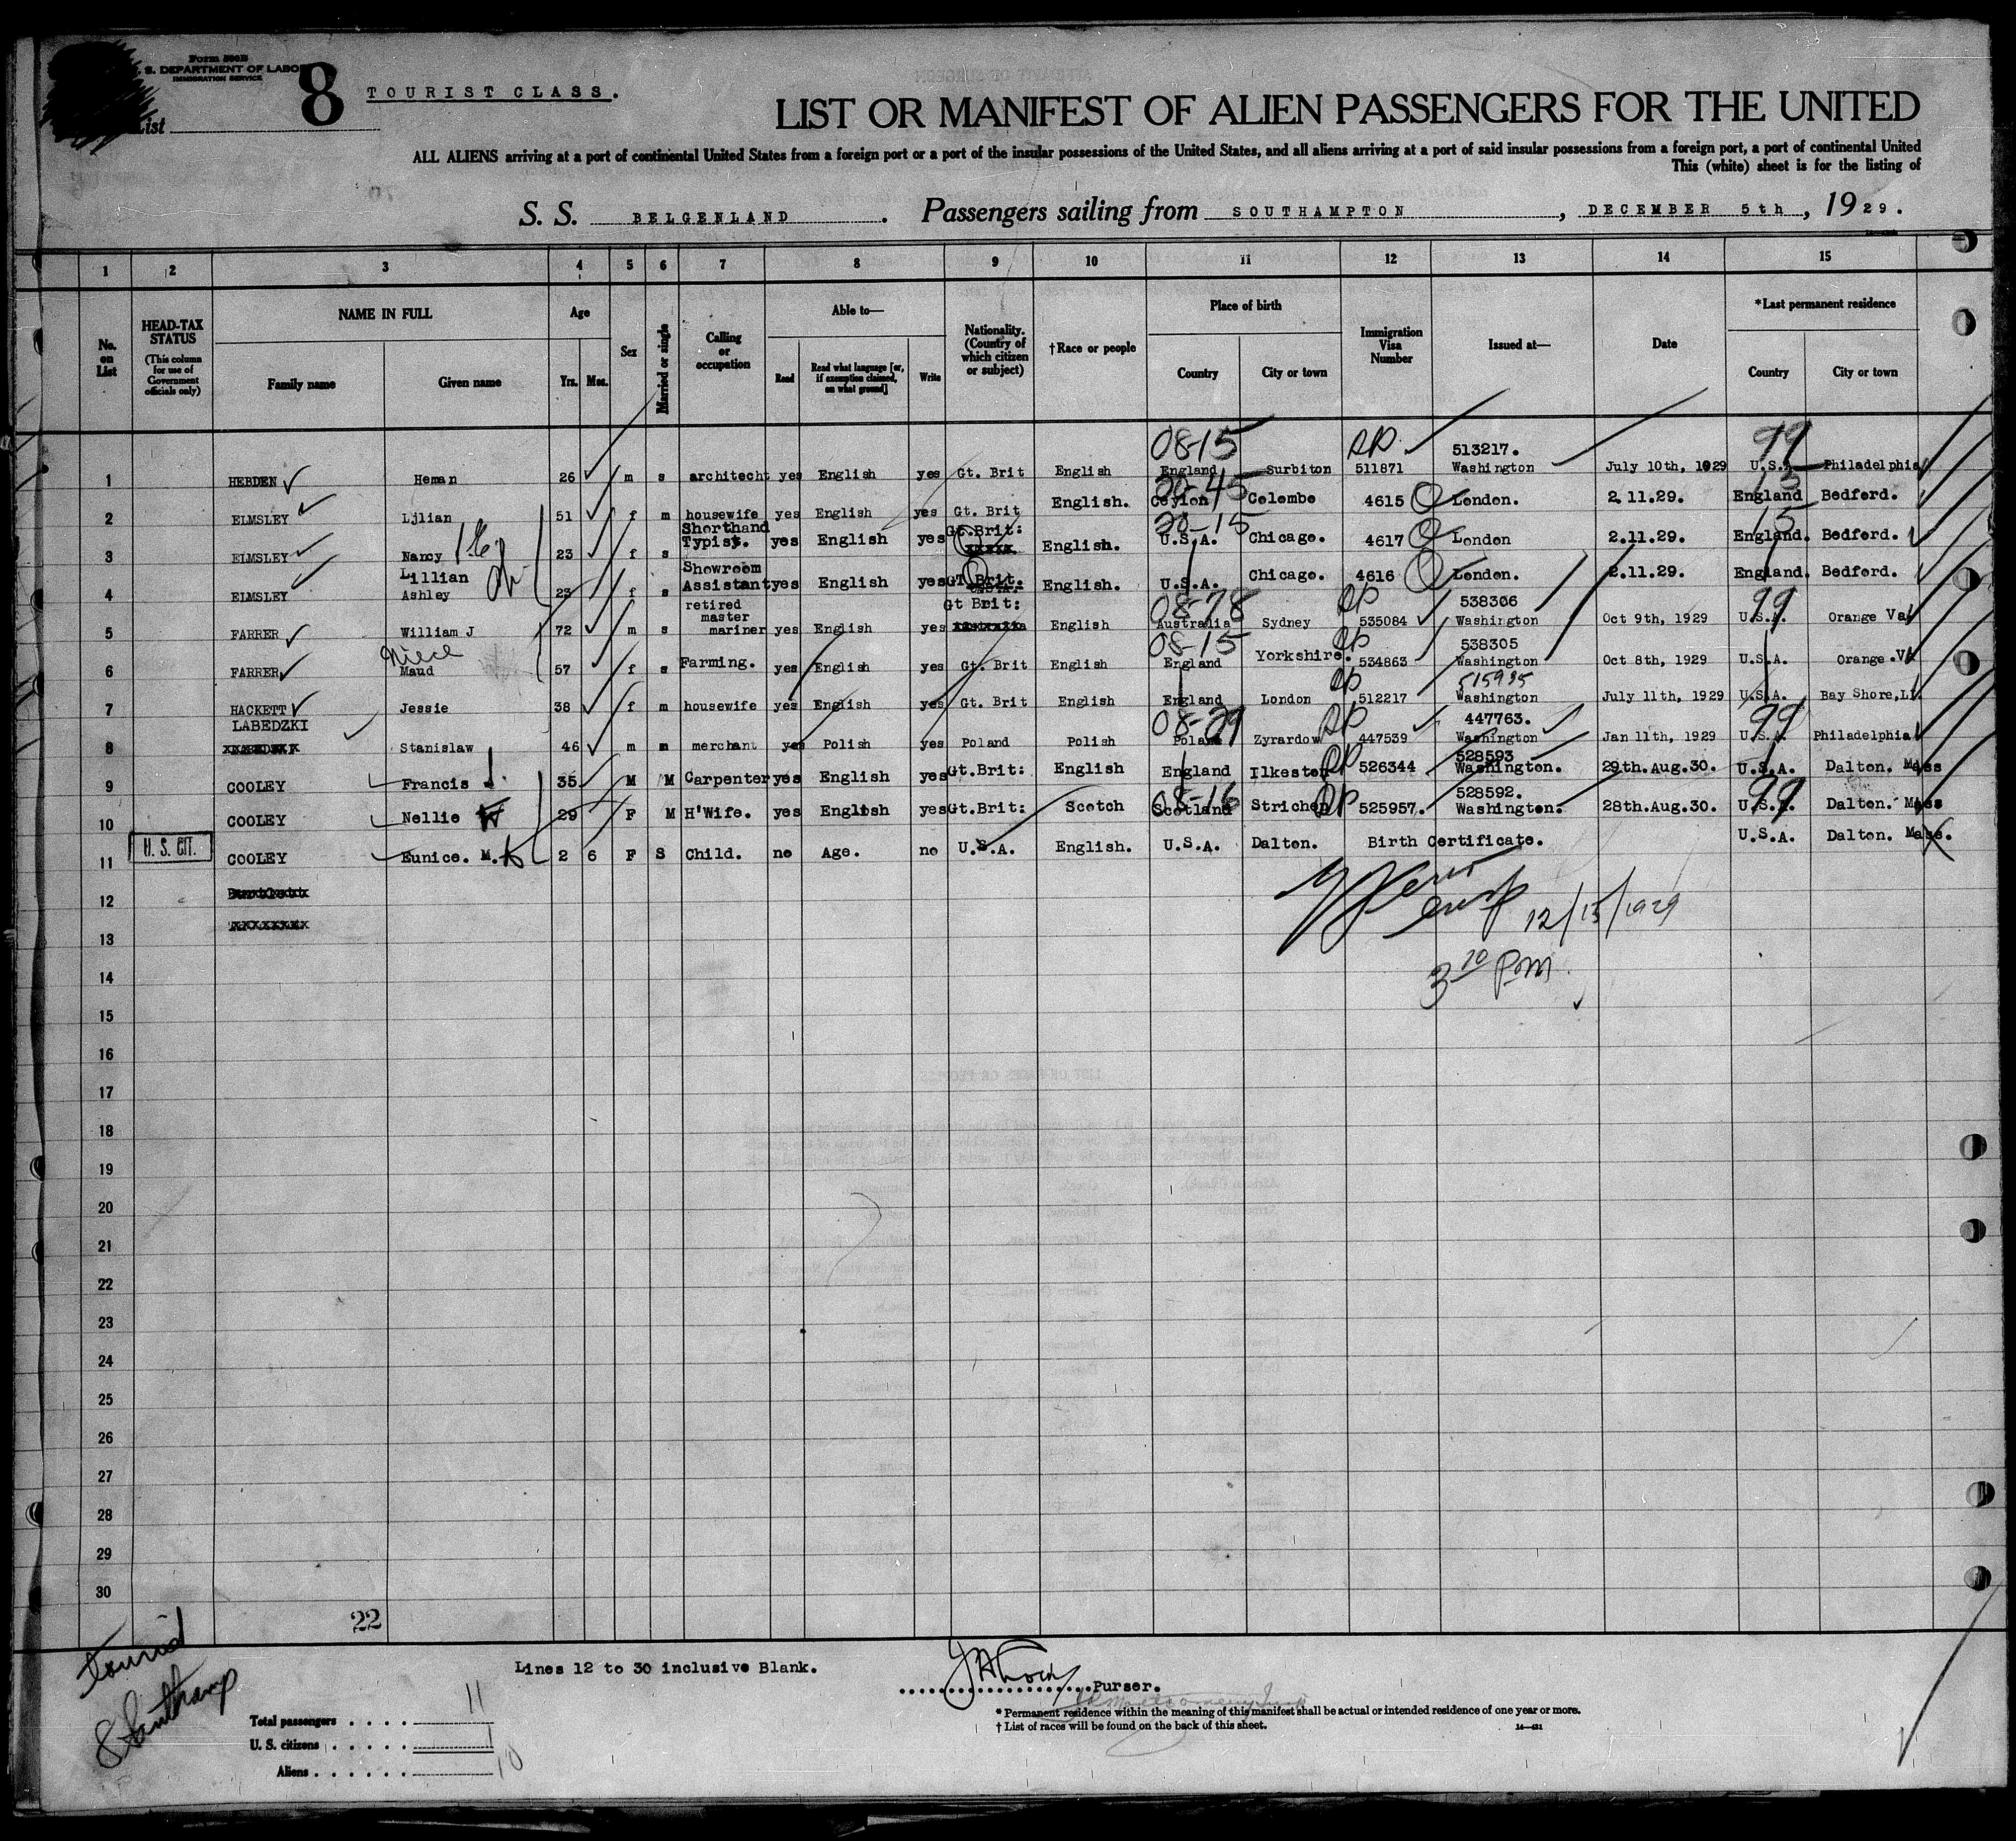 Form 500B
S. DEPARTMENT OF LABO
IMMIGRATION SERVICE
List 8 TOURIST CLASS.
LIST OR MANIFEST OF ALIEN PASSENGERS FOR THE UNITED
ALL ALIENS arriving at a port of continental United States from a foreign port or a port of the insular possessions of the United States, and all aliens arriving at a port of said insular possessions from a foreign port, a port of continental United
This (white) sheet is for the listing of
S. S. BELGENLAND. Passengers sailing from SOUTHAMPTON, DECEMBER 5th, 1929.
1 2 3 4 5 6 7 8 9 10 11 12 13 14 15
No. on List
HEAD-TAX STATUS (This column for use of Government officials only)
NAME IN FULL Family name Given name
Age Yrs. Mos.
Sex
Married or single
Calling or occupation
Able to— Read Read what language [or, if exemption claimed, on what ground] Write
Nationality. (Country of which citizen or subject)
†Race or people
Place of birth Country City or town
Immigration Visa Number
Issued at—
Date
*Last permanent residence Country City or town
08-15 RP 513217. 99
1 HEBDEN Heman 26 m s architect yes English yes Gt. Brit English England Surbiton 511871 Washington July 10th, 1929 U.S.A Philadelphia
20-45 15
2 ELMSLEY Lilian 51 f m housewife yes English yes Gt. Brit English. Ceylon Colombo 4615 London. 2.11.29. England Bedford.
20-15 15
3 ELMSLEY Nancy 23 f s Shorthand Typist. yes English yes Gt.Brit: English. U.S.A. Chicago. 4617 London 2.11.29. England. Bedford.
4 ELMSLEY Lillian Ashley 23 f s Showroom Assistant yes English yes GT.Brit. English. U.S.A. Chicago. 4616 London. 2.11.29. England. Bedford.
08-78 RP 538306 99
5 FARRER William J 72 m s retired master mariner yes English yes Gt Brit: English Australia Sydney 535084 Washington Oct 9th, 1929 U.S.A. Orange Va
Niece 08-15 RP 538305
6 FARRER Maud 57 f s Farming. yes English yes Gt. Brit English England Yorkshire. 534863 Washington Oct 8th, 1929 U.S.A. Orange .VA
RP 515985
7 HACKETT Jessie 38 f m housewife yes English yes Gt. Brit English England London 512217 Washington July 11th, 1929 U.S.A. Bay Shore,LI
LABEDZKI 08-29 RP 447763. 99
8 Stanislaw 46 m m merchant yes Polish yes Poland Polish Poland Zyrardow 447539 Washington Jan 11th, 1929 U.S.A. Philadelphia
RP 528593
9 COOLEY Francis J. 35 M M Carpenter yes English yes Gt.Brit: English England Ilkeston 526344 Washington. 29th.Aug.30. U.S.A. Dalton. Mass
08-16 RP 528592. 99
10 COOLEY Nellie 29 F M H'Wife. yes English yes Gt.Brit: Scotch Scotland Strichen 525957. Washington. 28th.Aug.30. U.S.A. Dalton. Mass
11 U. S. CIT. COOLEY Eunice. M. 2 6 F S Child. no Age. no U.S.A. English. U.S.A. Dalton. Birth Certificate. U.S.A. Dalton. Mass.
12
12/15/1929
13
3 10 Pm
14
15
16
17
18
19
20
21
22
23
24
25
26
27
28
29
30
22
tourist
Southamp
Lines 12 to 30 inclusive Blank.
Purser.
Total passengers 11
U. S. citizens 1
Aliens 10
* Permanent residence within the meaning of this manifest shall be actual or intended residence of one year or more.
† List of races will be found on the back of this sheet.
14—421